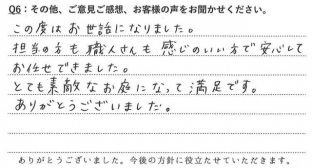 Q6：その他、ご意見ご感想、お客様の声をお聞かせください。
この度はお世話になりました。
担当の方も職人さんも感じのいい方で安心して
お任せできました。
とても素敵なお庭になって満足です。
ありがとうございました。
ありがとうございました。今後の方針に役立たせていただきます。